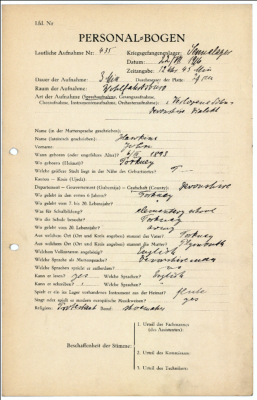 Lfd. Nr.
PERSONAL-BOGEN
Lautliche Aufnahme Nr.: 435 Kriegsgefangenlager: Sennelager
Datum:
Zeitangabe: 12 Uhr 45 Min
Dauer der Aufnahme: 3 Min
Raum der Aufnahme:
Art der Aufnahme (Sprechaufnahme, Gesangsaufnahme,
Choraufnahme, Instrumentenaufnahme, Orchesteraufnahme):
Devonshire
Name (in der Muttersprache geschrieben):
Name (lateinisch geschrieben): Hawkins
Vorname: John
Wann geboren (oder ungefähres Alter)? 1893
Wo geboren (Heimat)? Torkney
Welche größere Stadt liegt in der Nähe des Geburtsortes?
Kanton — Kreis (Ujedz):
Departement — Gouvernement (Gubernija) — Grafschaft (County): Devonshire
Wo gelebt in den ersten 6 Jahren? Torkney
Wo gelebt vom 7. bis 20. Lebensjahr?
Was für Schulbildung? elementary school
Wo die Schule besucht? Torkney
Wo gelebt vom 20. Lebensjahr? army
Aus welchem Ort (Ort und Kreis angeben) stammt der Vater? Torkney
Aus welchem Ort (Ort und Kreis angeben) stammt die Mutter? Plymouth
Welchem Volksstamm angehörig? English
Welche Sprache als Muttersprache?
Welche Sprachen spricht er außerdem?
Kann er lesen? yes Welche Sprachen? English
Kann er schreiben? Welche Sprachen?
Spielt er ein im Lager vorhandenes Instrument aus der Heimat? flute
Singt oder spielt er moderne europäische Musikweisen? yes
Religion: Protestant Beruf: shoemaker
Beschaffenheit der Stimme:
1. Urteil des Fachmannes
(des Assistenten):
2. Urteil des Kommissars:
3. Urteil des Technikers: